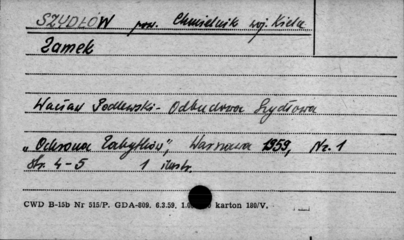 SZYDŁÓW pow. Chmielnik woj. Kiele
Zamek
Wacław Podlewski - Odbudowa Szydłowa
„Ochrona Zabytków", Warszawa 1959, Nr. 1
str. 4-5 1 ilustr.
CWD B-15b Nr 515/P. GDA-809. 6.3.59. karton 180/V.